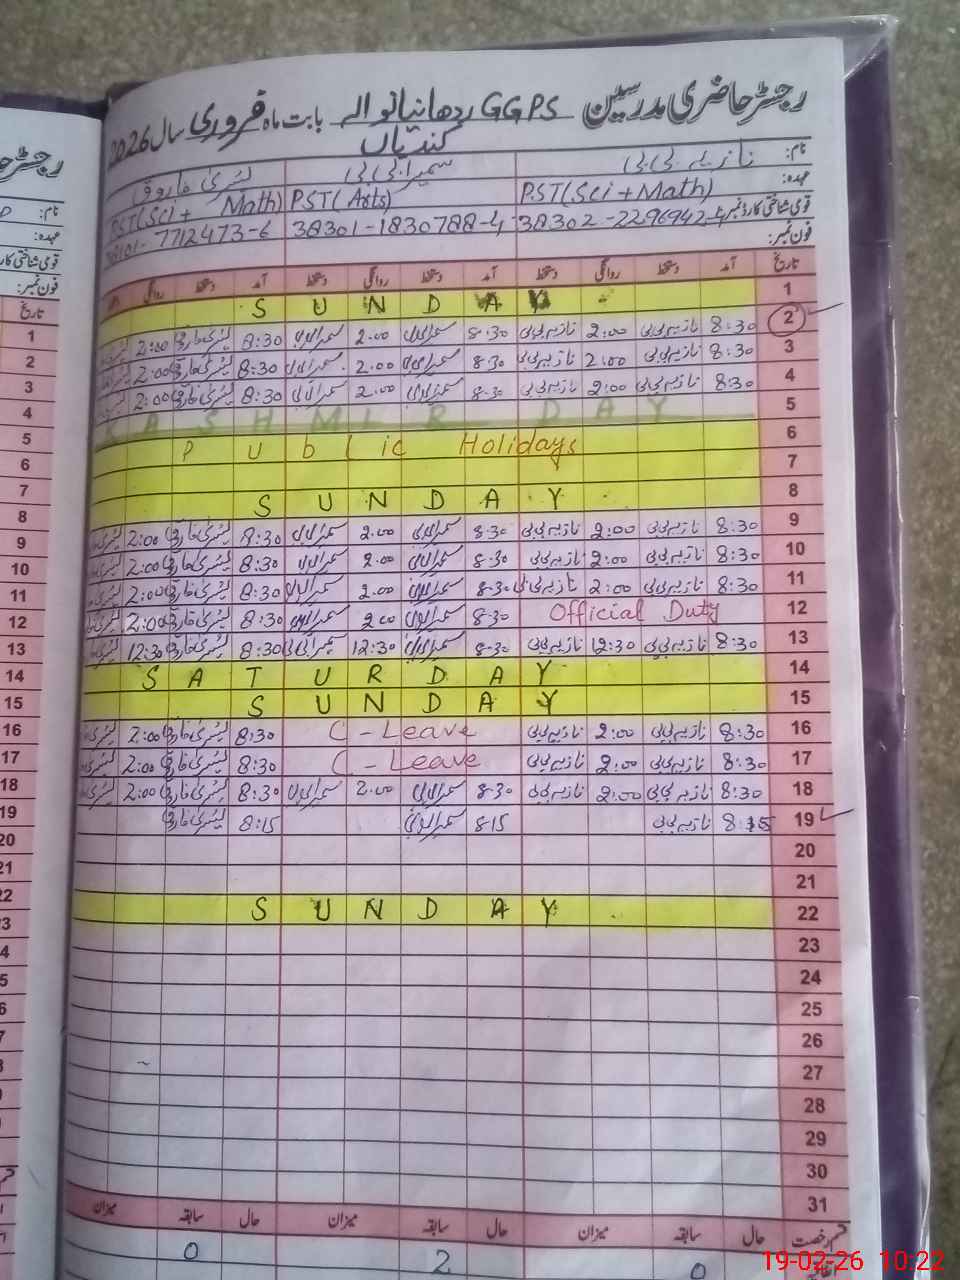 رجسٹر حاضری مدرسین GGPS ردھانیانوالہ بابت ماہ فروری سال 2026
کندیاں
نام: نازیہ بی بی سمیرا بی بی یسریٰ فاروق
عہدہ: PST(Sci + Math) PST(Arts) PST(Sci + Math)
قومی شناختی کارڈ نمبر: 38302-2296942-4 38301-1830788-4 7712473-6
فون نمبر:
تاریخ آمد دستخط روانگی دستخط آمد دستخط روانگی دستخط آمد دستخط روانگی
1 SUNDAY
2 8:30 نازیہ بی بی 2:00 نازیہ بی بی 8:30 سمیرا بی بی 2:00 سمیرا بی بی 8:30 یسریٰ فاروق 2:00
3 8:30 نازیہ بی بی 2:00 نازیہ بی بی 8:30 سمیرا بی بی 2:00 سمیرا بی بی 8:30 یسریٰ فاروق 2:00
4 8:30 نازیہ بی بی 2:00 نازیہ بی بی 8:30 سمیرا بی بی 2:00 سمیرا بی بی 8:30 یسریٰ فاروق 2:00
5 KASHMIR DAY
6 Public Holidays
7
8 SUNDAY
9 8:30 نازیہ بی بی 2:00 نازیہ بی بی 8:30 سمیرا بی بی 2:00 سمیرا بی بی 8:30 یسریٰ فاروق 2:00
10 8:30 نازیہ بی بی 2:00 نازیہ بی بی 8:30 سمیرا بی بی 2:00 سمیرا بی بی 8:30 یسریٰ فاروق 2:00
11 8:30 نازیہ بی بی 2:00 نازیہ بی بی 8:30 سمیرا بی بی 2:00 سمیرا بی بی 8:30 یسریٰ فاروق 2:00
12 Official Duty 8:30 سمیرا بی بی 2:00 سمیرا بی بی 8:30 یسریٰ فاروق 2:00
13 8:30 نازیہ بی بی 12:30 نازیہ بی بی 8:30 سمیرا بی بی 12:30 سمیرا بی بی 8:30 یسریٰ فاروق 12:30
14 SATURDAY
15 SUNDAY
16 8:30 نازیہ بی بی 2:00 نازیہ بی بی C-Leave 8:30 یسریٰ فاروق 2:00
17 8:30 نازیہ بی بی 2:00 نازیہ بی بی C-Leave 8:30 یسریٰ فاروق 2:00
18 8:30 نازیہ بی بی 2:00 نازیہ بی بی 8:30 سمیرا بی بی 2:00 سمیرا بی بی 8:30 یسریٰ فاروق 2:00
19 8:15 نازیہ بی بی 8:15 سمیرا بی بی 8:15 یسریٰ فاروق
20
21
22 SUNDAY
23
24
25
26
27
28
29
30
31
قسم رخصت حال سابقہ میزان حال سابقہ میزان حال سابقہ میزان
0 2 0
19-02-26 10:22